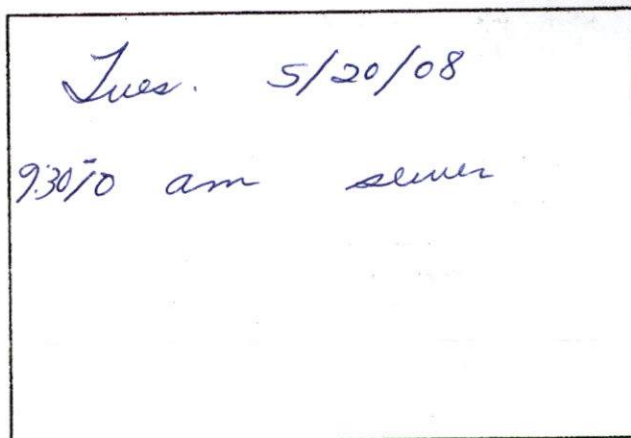 Tues. 5/20/08
9:30-10 am sewer